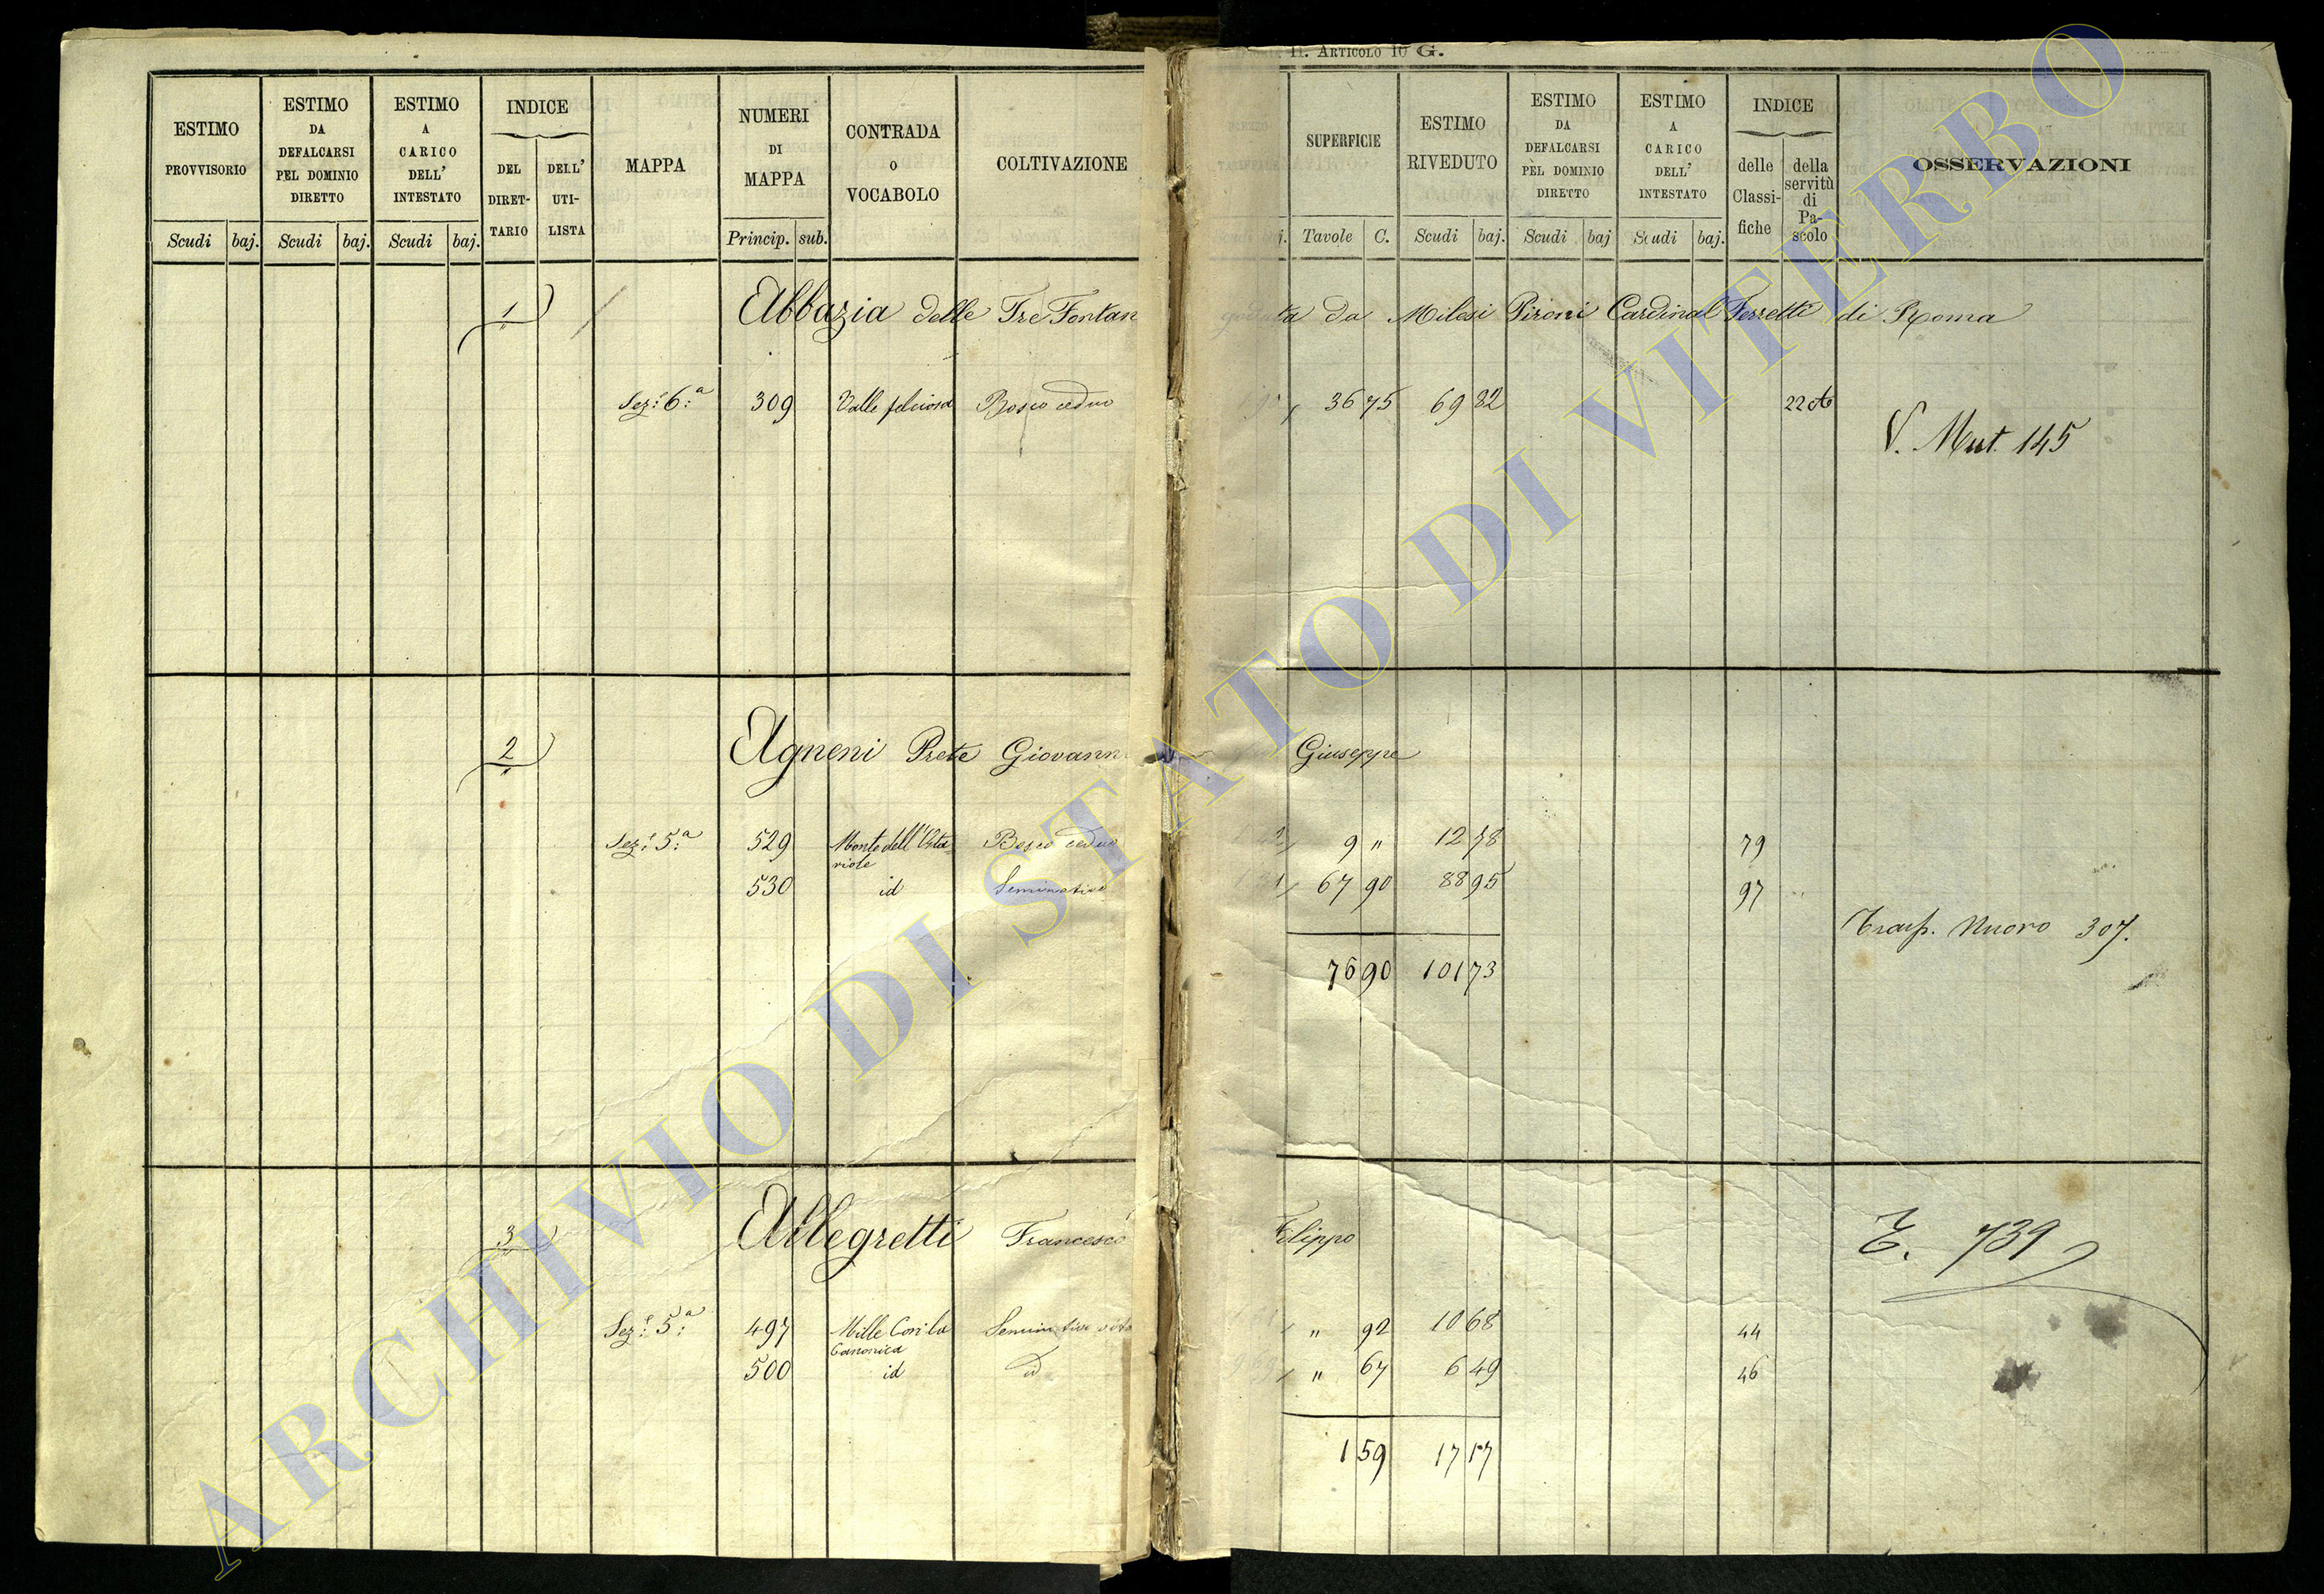 II. ARTICOLO 10 G.
ESTIMO PROVVISORIO
Scudi baj.
ESTIMO DA DEFALCARSI PEL DOMINIO DIRETTO
Scudi baj.
ESTIMO A CARICO DELL' INTESTATO
Scudi baj.
INDICE
DEL DIRET-TARIO
DELL' UTI-LISTA
MAPPA
NUMERI DI MAPPA
Princip. sub.
CONTRADA O VOCABOLO
COLTIVAZIONE
SUPERFICIE
Tavole C.
ESTIMO RIVEDUTO
Scudi baj.
ESTIMO DA DEFALCARSI PEL DOMINIO DIRETTO
Scudi baj
ESTIMO A CARICO DELL' INTESTATO
Scudi baj.
INDICE
delle Classi-fiche
della servitù di Pa-scolo
OSSERVAZIONI
1 Abbazia delle Tre Fontan goduta da Milesi Pironi Cardinal Ferretti di Roma
Sez: 6:a 309 Valle felciosa Bosco ceduo 36 75 69 82 22
V. Mut. 145
2 Agneni Prete Giovann Giuseppe
Sez: 5:a 529 Monte dell' Bosco ceduo 9 " 12 78 79
530 id Seminativo 67 90 88 95 97
Trasp. Nuovo 307.
76 90 101 73
3 Allegretti Francesco Filippo
T. 739
Sez: 5:a 497 Mille Cori la Canonica Seminativo 92 10 68 44
500 id id " 67 6 49 46
1 59 17 17
ARCHIVIO DI STATO DI VITERBO